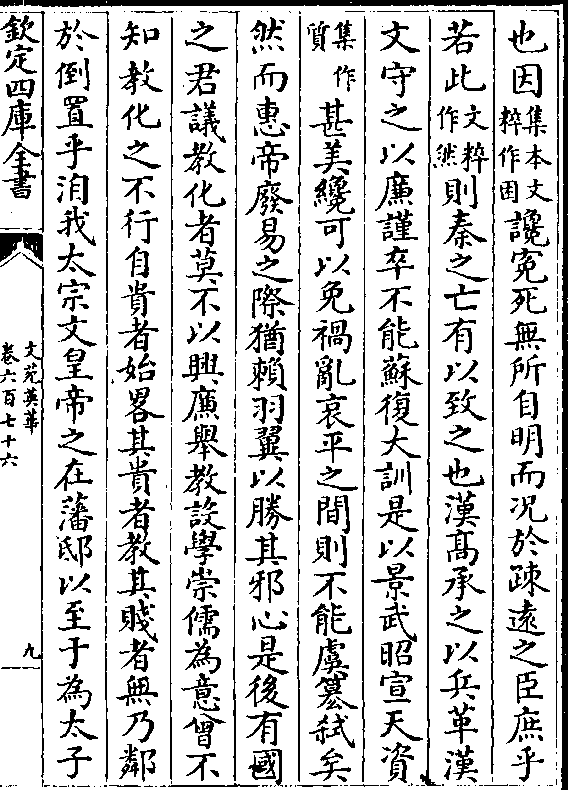 也因集本文粹作困讒冤死無所自明而况於疎遠之臣庶乎
若此文粹作然則秦之亡有以致之也漢髙承之以兵革漢
文守之以廉謹卒不能蘇復大訓是以景武昭宣天資
集作質甚美纔可以免禍亂哀平之間則不能虞簒弑矣
然而惠帝廢易之際猶賴羽翼以勝其邪心是後有國
之君議教化者莫不以興廉舉教設學崇儒為意曾不
知教化之不行自貴者始畧其貴者教其賤者無乃鄰
於倒置乎洎我太宗文皇帝之在藩邸以至于為太子
欽定四庫全書
文苑英華
卷六百七十六
九